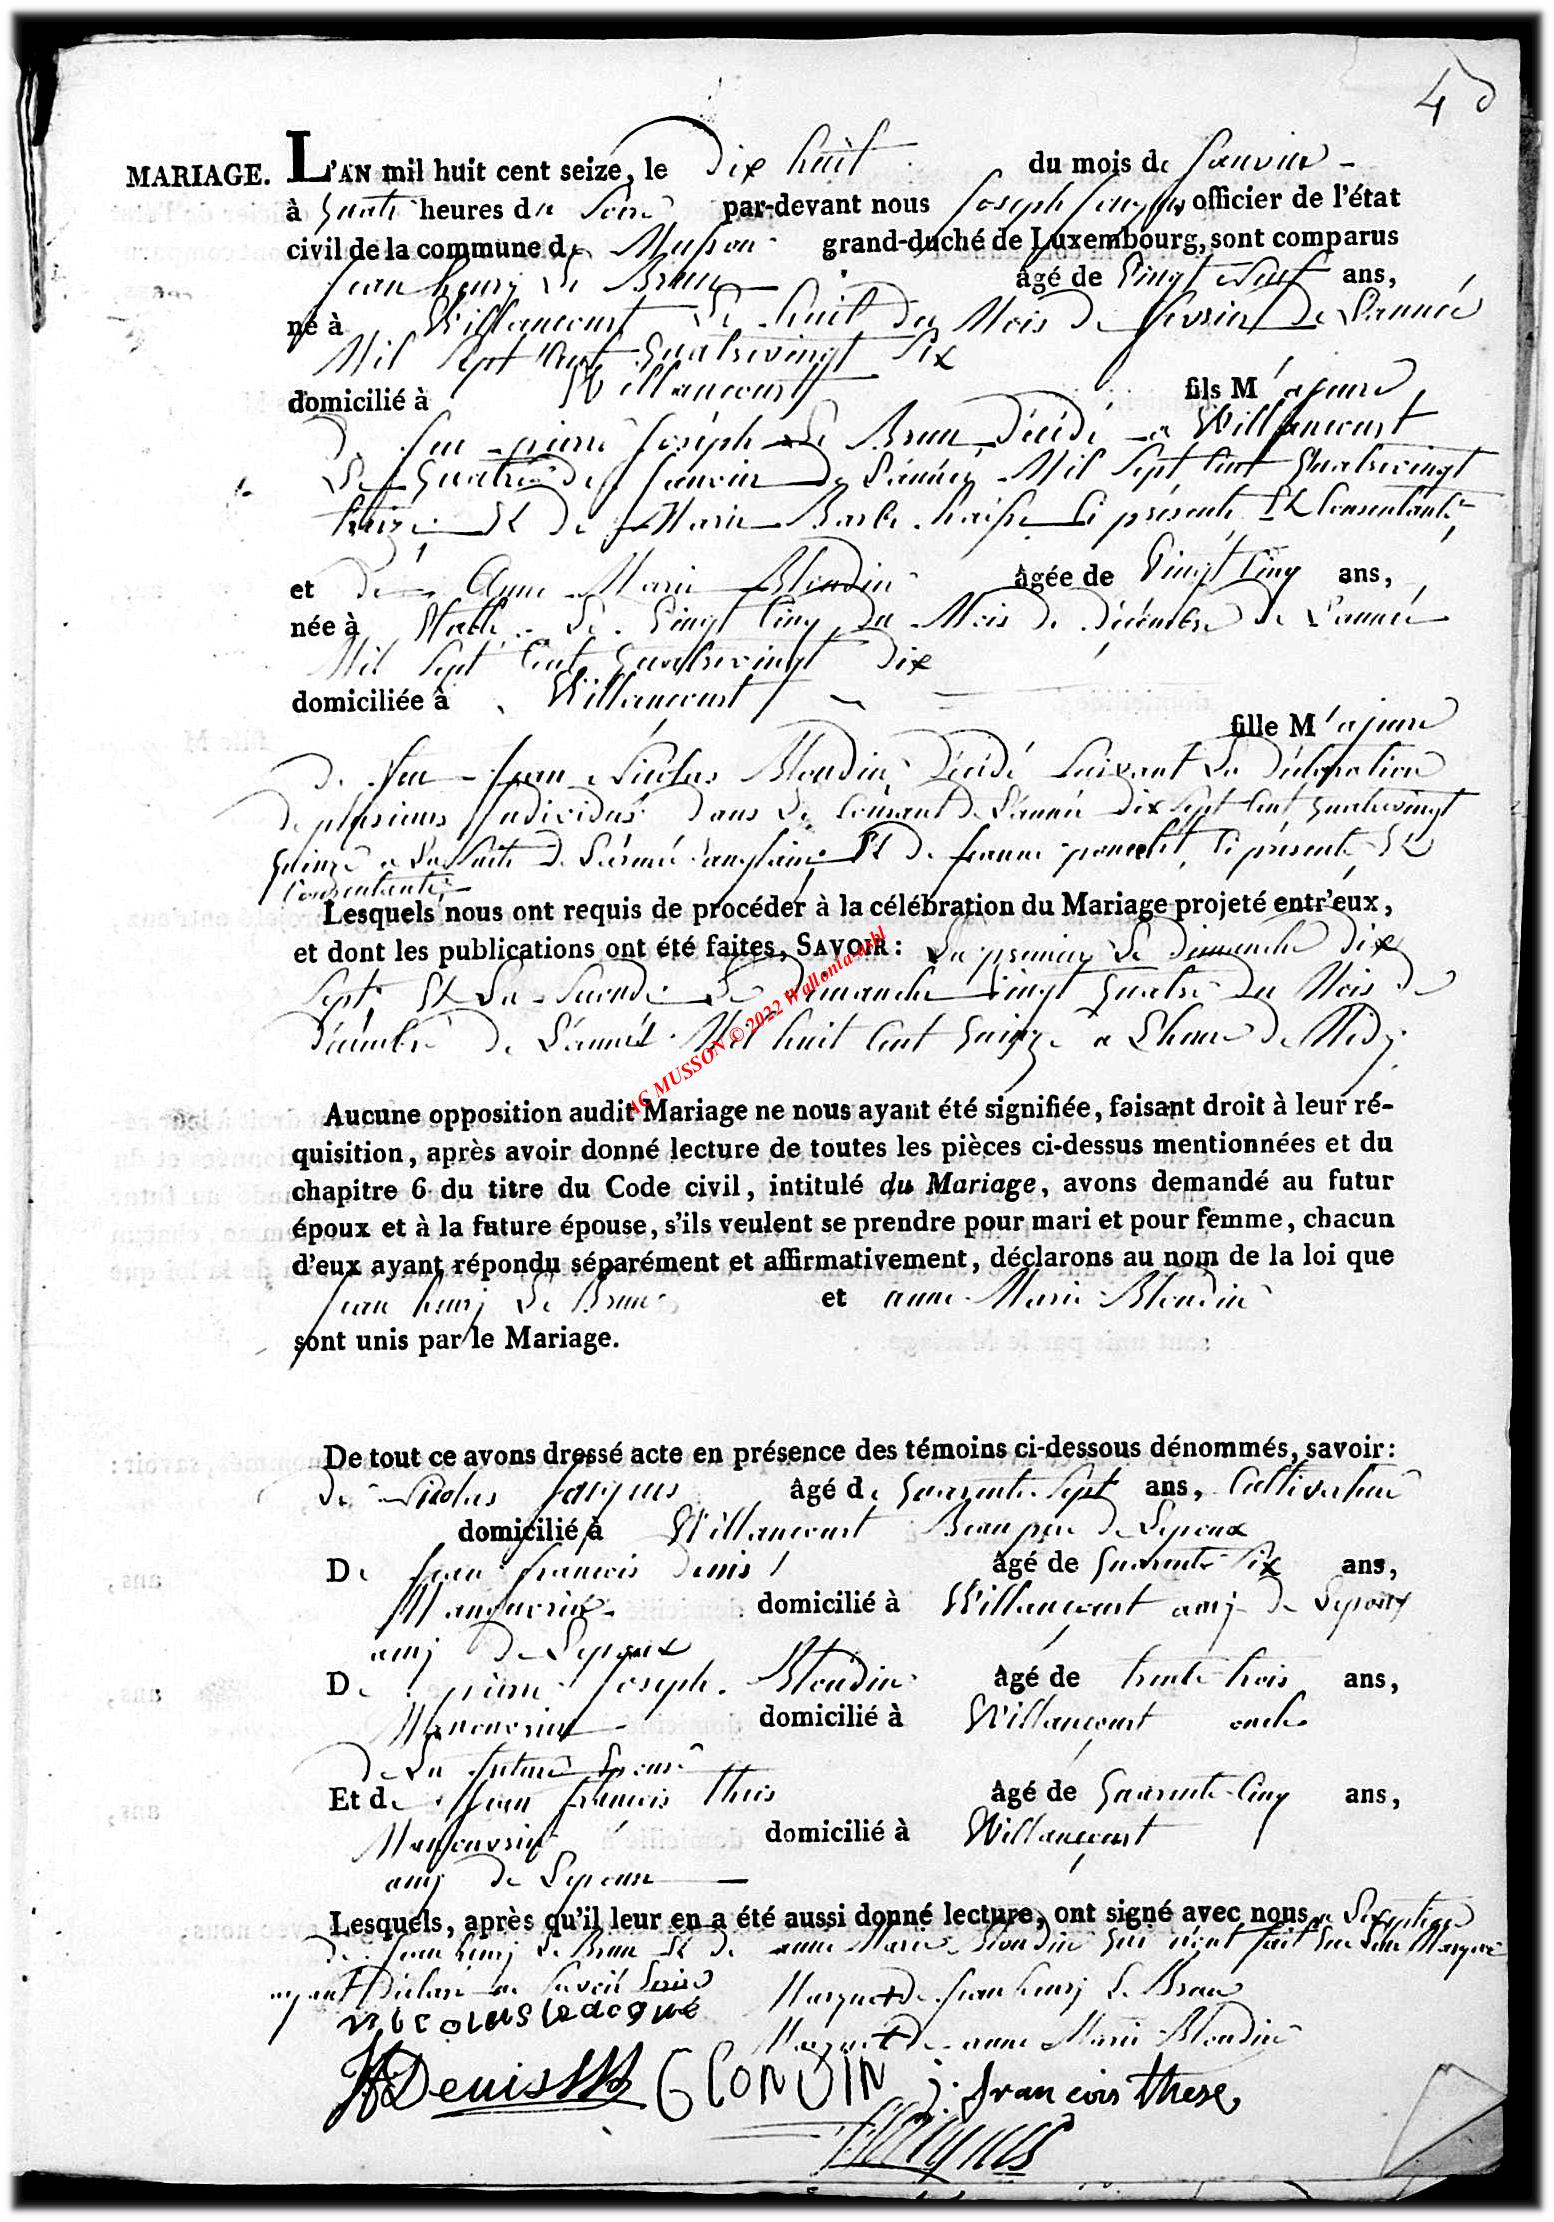 4
MARIAGE. L'AN mil huit cent seize, le Dix huit du mois de Janvier
à quatre heures du Soire par-devant nous Joseph officier de l'état
civil de la commune de Musson grand-duché de Luxembourg, sont comparus
Jean henry Le Brun âgé de Vingt neuf ans,
né à Willancourt Le huit Du Mois De fevrier De L'année
Mil Sept Cent Quatrevingt Six
domicilié à Willancourt fils M'ajeure
De feu pierre Joseph Le Brun Décédé a Willancourt
Le Quatre de Janvier De L'année Mil Sept Cent Quatrevingt
treize Et De Marie Barbe Ci présente Et Consentante,
et de Anne Marie Blondin âgée de Vingt Cinq ans,
née à Le Vingt Cinq Du Mois De Décembre De L'année
Mil Sept Cent Quatrevingt Dix
domiciliée à Willancourt
fille M'ajeure
De feu Jean Nicolas Blondin Décédé Suivant La Déclaration
De plusieurs Individus Dans Le Courant De L'année Dix Sept Cent Quatrevingt
Quinze a La Suite De L'armée Et De Jeanne Ci présente Et
Consentante
Lesquels nous ont requis de procéder à la célébration du Mariage projeté entr'eux,
et dont les publications ont été faites, SAVOIR: La premiere Le Dimanche Dix
Sept, Et La Seconde Le Dimanche Vingt Quatre Du Mois De
Décembre De L'année Mil huit Cent Quinze a L'heure De Midy
AC MUSSON © 2022 Wallonia asbl
Aucune opposition audit Mariage ne nous ayant été signifiée, faisant droit à leur ré-
quisition, après avoir donné lecture de toutes les pièces ci-dessus mentionnées et du
chapitre 6 du titre du Code civil, intitulé du Mariage, avons demandé au futur
époux et à la future épouse, s'ils veulent se prendre pour mari et pour femme, chacun
d'eux ayant répondu séparément et affirmativement, déclarons au nom de la loi que
Jean henry Le Brun et anne Marie Blondin
sont unis par le Mariage.
De tout ce avons dressé acte en présence des témoins ci-dessous dénommés, savoir:
de Nicolas Jacques âgé de Quarente Sept ans, Cultivateur
domicilié à Willancourt Beau pere De L'epoux
De Jean francois Denis âgé de Quarente Six ans,
Manouvrier domicilié à Willancourt amy De L'epoux
amy De L'epoux
De pierre Joseph Blondin âgé de trente trois ans,
Manouvrier domicilié à Willancourt oncle
De La future Epouse
Et de Jean francois âgé de Quarente Cinq ans,
Manouvrier domicilié à Willancourt
amy De L'epouse
Lesquels, après qu'il leur en a été aussi donné lecture, ont signé avec nous, a L'exception
De Jean henry Le Brun Et De anne Marie Blondin Qui n'ont fait que Leur Marque
ayant Déclaré ne Savoir
Marque + De Jean henry Le Brun
Marque + De anne Marie Blondin
Denis GLONDIN j. francois these